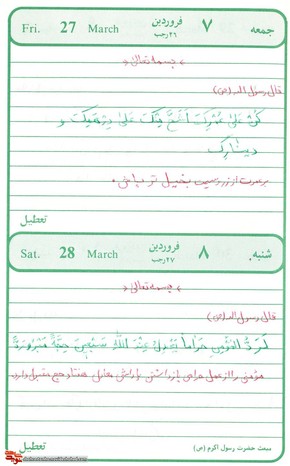 Fri. 27 March فروردین ۷ جمعه
۲۶ رجب
« بسمه تعالی »
قال رسول الله (ص)
کن علی عمرک اشح منک علی درهمک و
دینارک
بر عمرت از زر و سیمت بخیل تر باش .
تعطیل
Sat. 28 March فروردین ۸ شنبه
۲۷ رجب
« بسمه تعالی »
قال رسول الله (ص)
لرد المؤمن حراما یعدل عند الله سبعین حجة مبرورة
مؤمنی را از عمل حرامی بازداشتن پاداش معادل هفتاد حج مقبول دارد
تعطیل
مبعث حضرت رسول اکرم (ص)